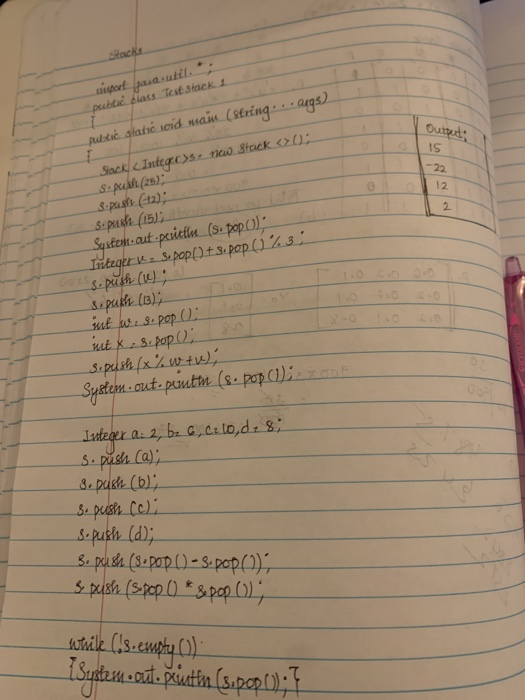 Stacks
import java.util.*;
public class TestStack1
{
public static void main (String...args)
{
Stack <Integer>s = new Stack <>();
s.push(25);
s.push(-12);
s.push(15);
System.out.println (s.pop());
Integer v = s.pop()+s.pop() % 3;
s.push(v);
s.push(13);
int w = s.pop();
int x = s.pop();
s.push(x % w + v);
System.out.println (s.pop());
Integer a=2, b=6, c=10, d=8;
s.push (a);
s.push (b);
s.push (c);
s.push (d);
s.push (s.pop() - s.pop());
s.push (s.pop() * s.pop());
while (!s.empty())
{System.out.println (s.pop(); }
Output:
15
-22
12
2